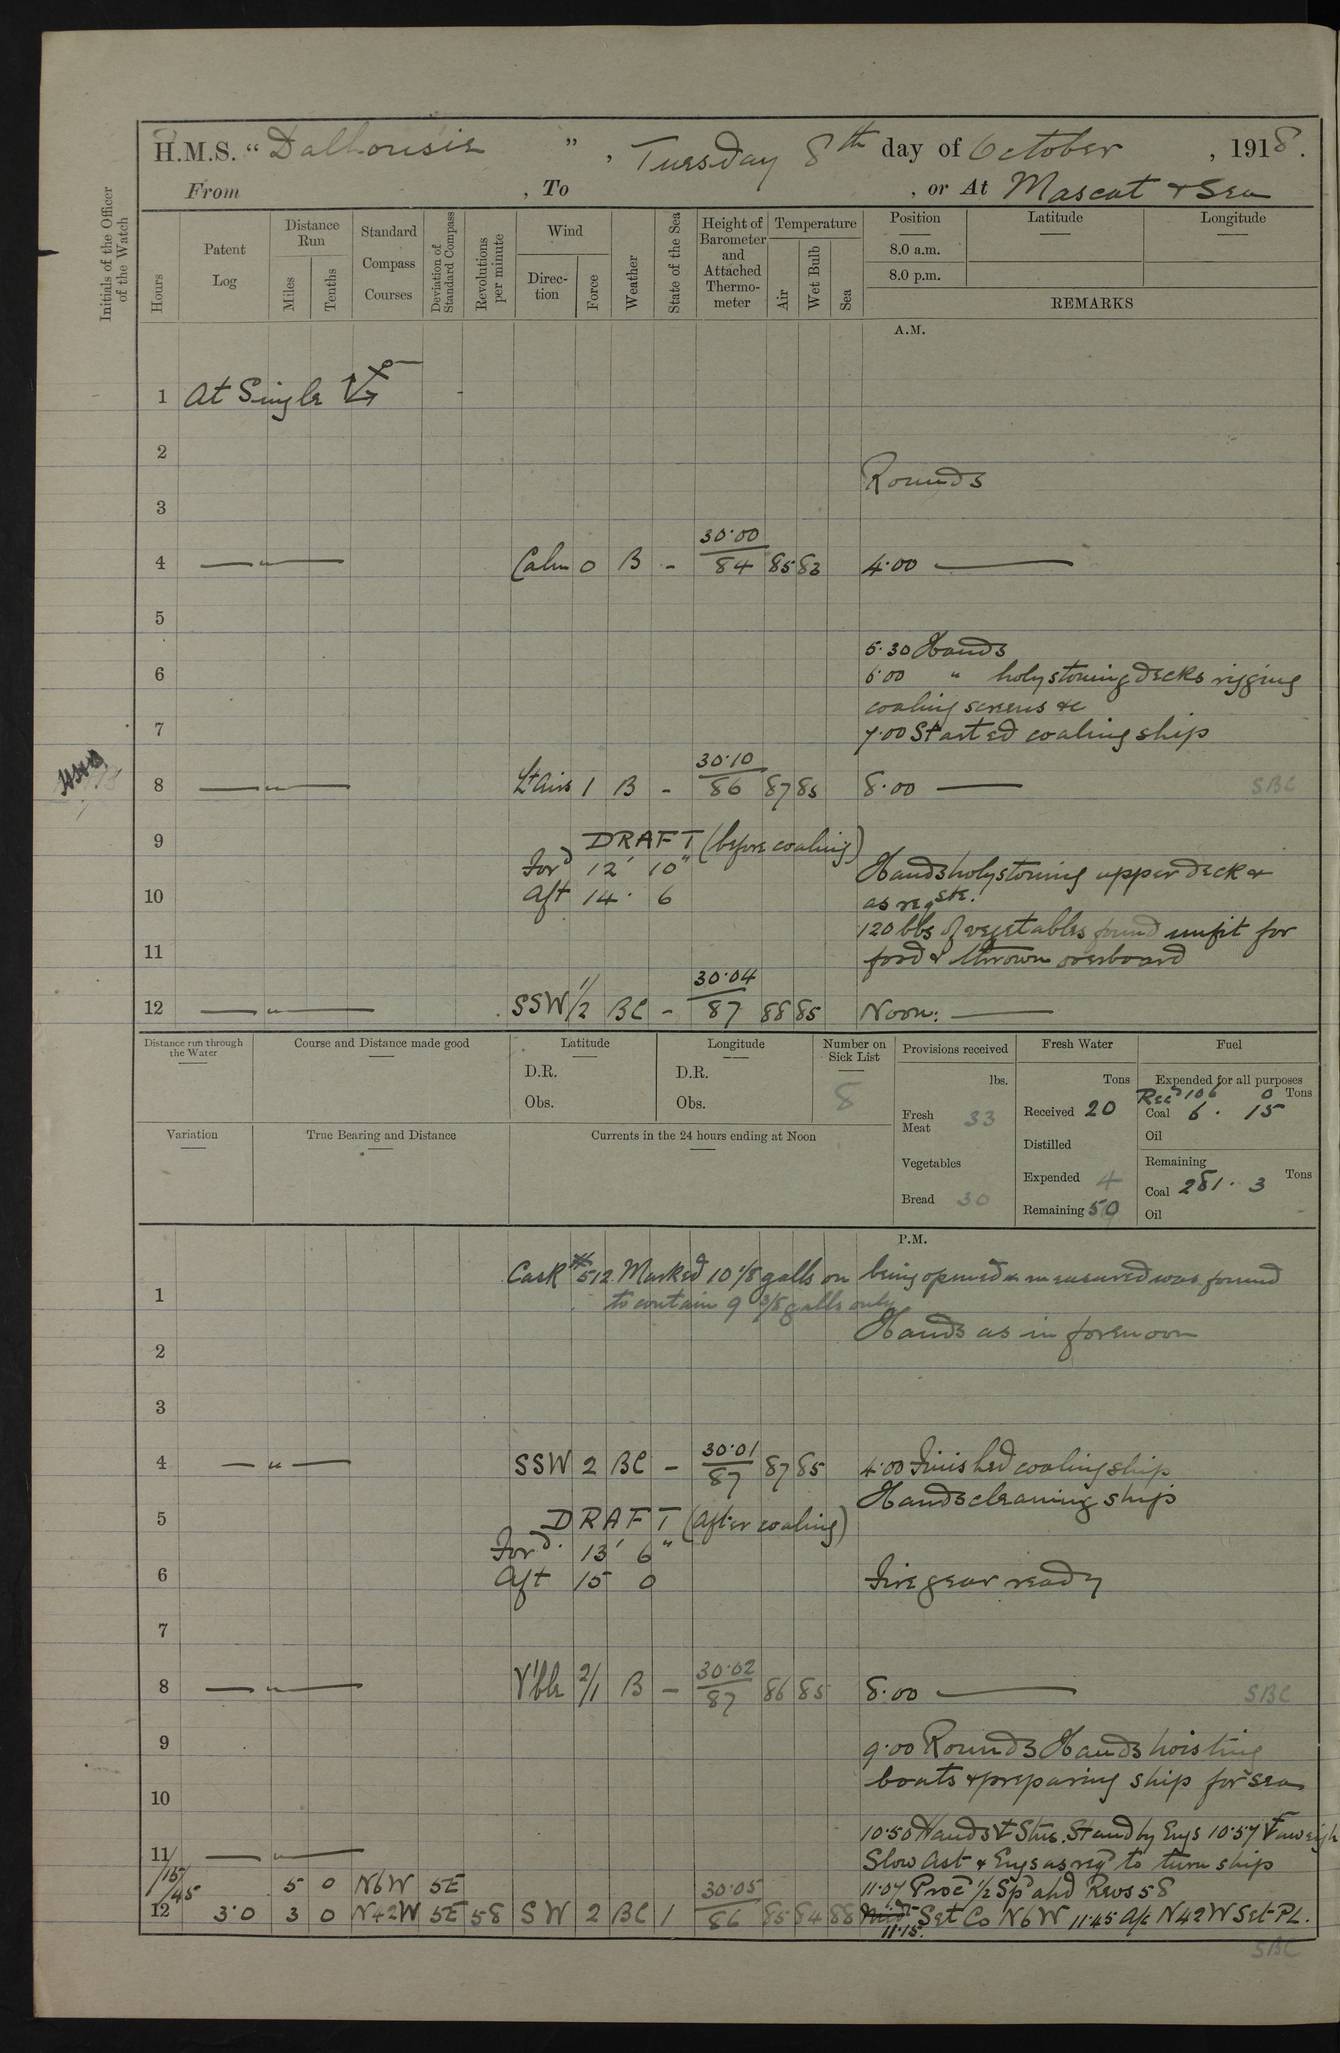 H.M.S. "Dalhousie", Tuesday 8th day of October, 1918.
From , To , or At Mascat & Sea
Initials of the Officer of the Watch
Hours
Patent Log
Distance Run
Miles
Tenths
Standard Compass Courses
Deviation of Standard Compass
Revolutions per minute
Wind
Direction
Force
Weather
State of the Sea
Height of Barometer and Attached Thermometer
Temperature
Air
Wet Bulb
Sea
Position Latitude Longitude
8.0 a.m.
8.0 p.m.
REMARKS
A.M.
1 At Single
2
Rounds
3
4 — " — Calm 0 B - 30·00 / 84 85 83 4·00 —
5
5·30 Hands
6 6·00 " holystoning decks rigging
coaling screens &c
7 7·00 Started coaling ship
8 — " — Lt Airs 1 B - 30·10 / 86 87 85 8·00 — SBC
9 DRAFT (before coaling)
For'd 12' 10" Hands holystoning upper deck &
10 Aft 14· 6 as reqste.
120 lbs of vegetables found unfit for
11 food & thrown overboard
12 — " — SSW 1/2 BC - 30·04 / 87 88 85 Noon: —
Distance run through the Water
Course and Distance made good
Latitude
D.R.
Obs.
Longitude
D.R.
Obs.
Number on Sick List
8
Variation
True Bearing and Distance
Currents in the 24 hours ending at Noon
Provisions received
lbs.
Fresh Meat 33
Vegetables
Bread 30
Fresh Water
Tons
Received 20
Distilled
Expended 4
Remaining 50
Fuel
Expended for all purposes
Recd 106 0 Tons
Coal 6· 15
Oil
Remaining
Tons
Coal 281· 3
Oil
P.M.
Cask # 512 Marked 10 1/8 galls on being opened & measured was found
1 to contain 9 3/8 galls only
Hands as in forenoon
2
3
4 — " — SSW 2 BC - 30·01 / 87 87 85 4·00 Finished coaling ship
Hands cleaning ship
5 DRAFT (after coaling)
For'd. 13' 6"
6 Aft 15 0 Fire gear ready
7
8 — " — V'ble 2/1 B - 30·02 / 87 86 85 8·00 — SBC
9 9·00 Rounds Hands hoisting
boats & preparing ship for sea
10
10·50 Hands Stns. Stand by Engs 10·57 aweigh
11 — " — Slow Ast & Engs as reqd to turn ship
/15/45 5 0 N6W 5E 11·07 Proc'd 1/2 Sp'd ahd Revs 58
12 3·0 3 0 N42W 5E 58 SW 2 BC 1 30·05 / 86 85 84 88 Midt 11·15. Set Co N6W 11·45 A/c N42W Set P.L.
SBC